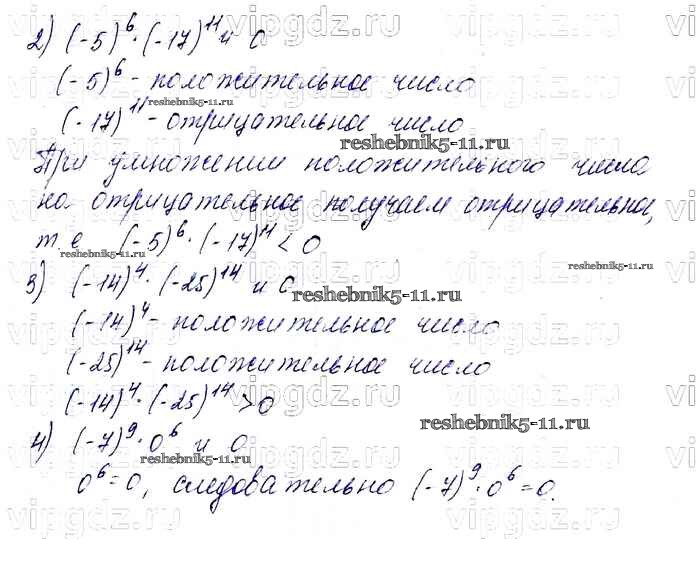 2) (-5)⁶ · (-17)¹¹ и 0
(-5)⁶ - положительное число
(-17)¹¹ - отрицательное число
При умножении положительного числа
на отрицательное получаем отрицательное,
т.е. (-5)⁶ · (-17)¹¹ < 0
3) (-14)⁴ · (-25)¹⁴ и 0
(-14)⁴ - положительное число
(-25)¹⁴ - положительное число
(-14)⁴ · (-25)¹⁴ > 0
4) (-7)⁹ · 0⁶ и 0
0⁶ = 0, следовательно (-7)⁹ · 0⁶ = 0.
vipgdz.ru
reshebnik5-11.ru